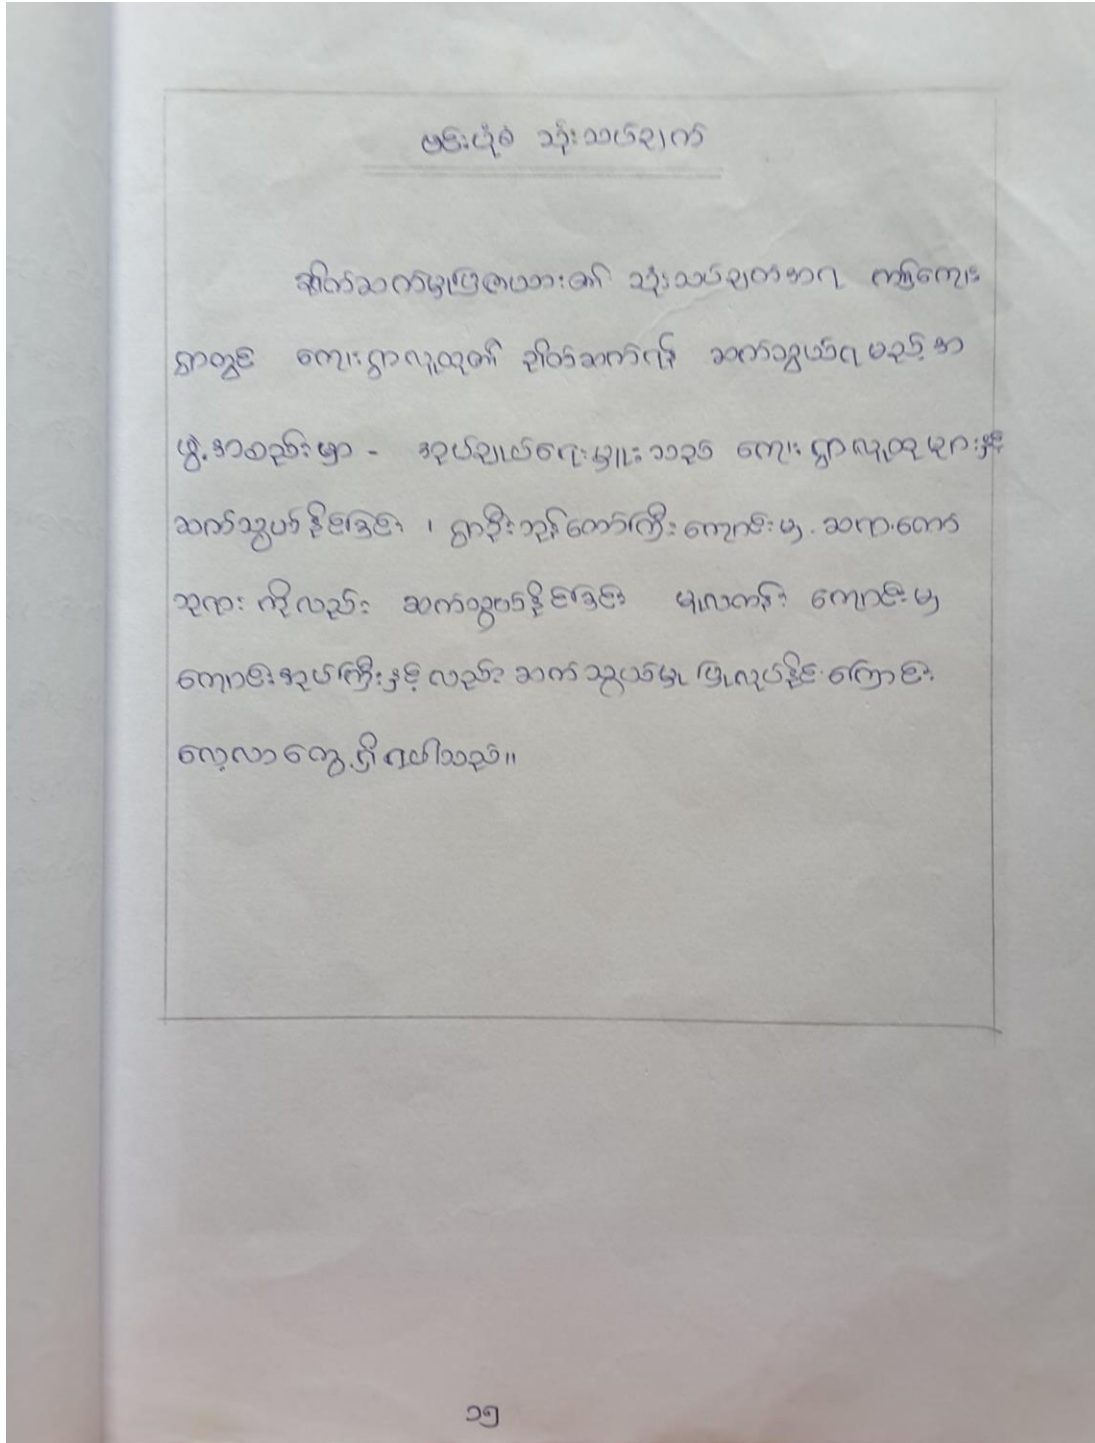 ဖမ်းပုံစံ သုံးသပ်ချက်
ချိတ်ဆက်မှုပြဇယား၏ သုံးသပ်ချက်အရ ကျေး
ရွာတွင် ကျေးရွာလူထု၏ ချိတ်ဆက်ရန် ဆက်သွယ်ရမည့် အ
ဖွဲ့အစည်းမှာ - အုပ်ချုပ်ရေးမှူးသည် ကျေးရွာလူထုများနှင့်
ဆက်သွယ်နိုင်ခြင်း ၊ ရွာဦးဘုန်တော်ကြီးကျောင်းမှ ဆရာတော်
ဘုရား ကိုလည်း ဆက်သွယ်နိုင်ခြင်း မူလတန်း ကျောင်းမှ
ကျောင်းအုပ်ကြီးနှင့်လည်း ဆက်သွယ်မှု ပြုလုပ်နိုင်ကြောင်း
လေ့လာတွေ့ရှိရပါသည်။
၁၅